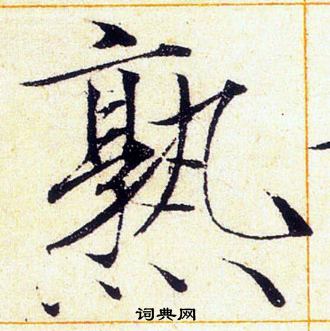 熟
词典网